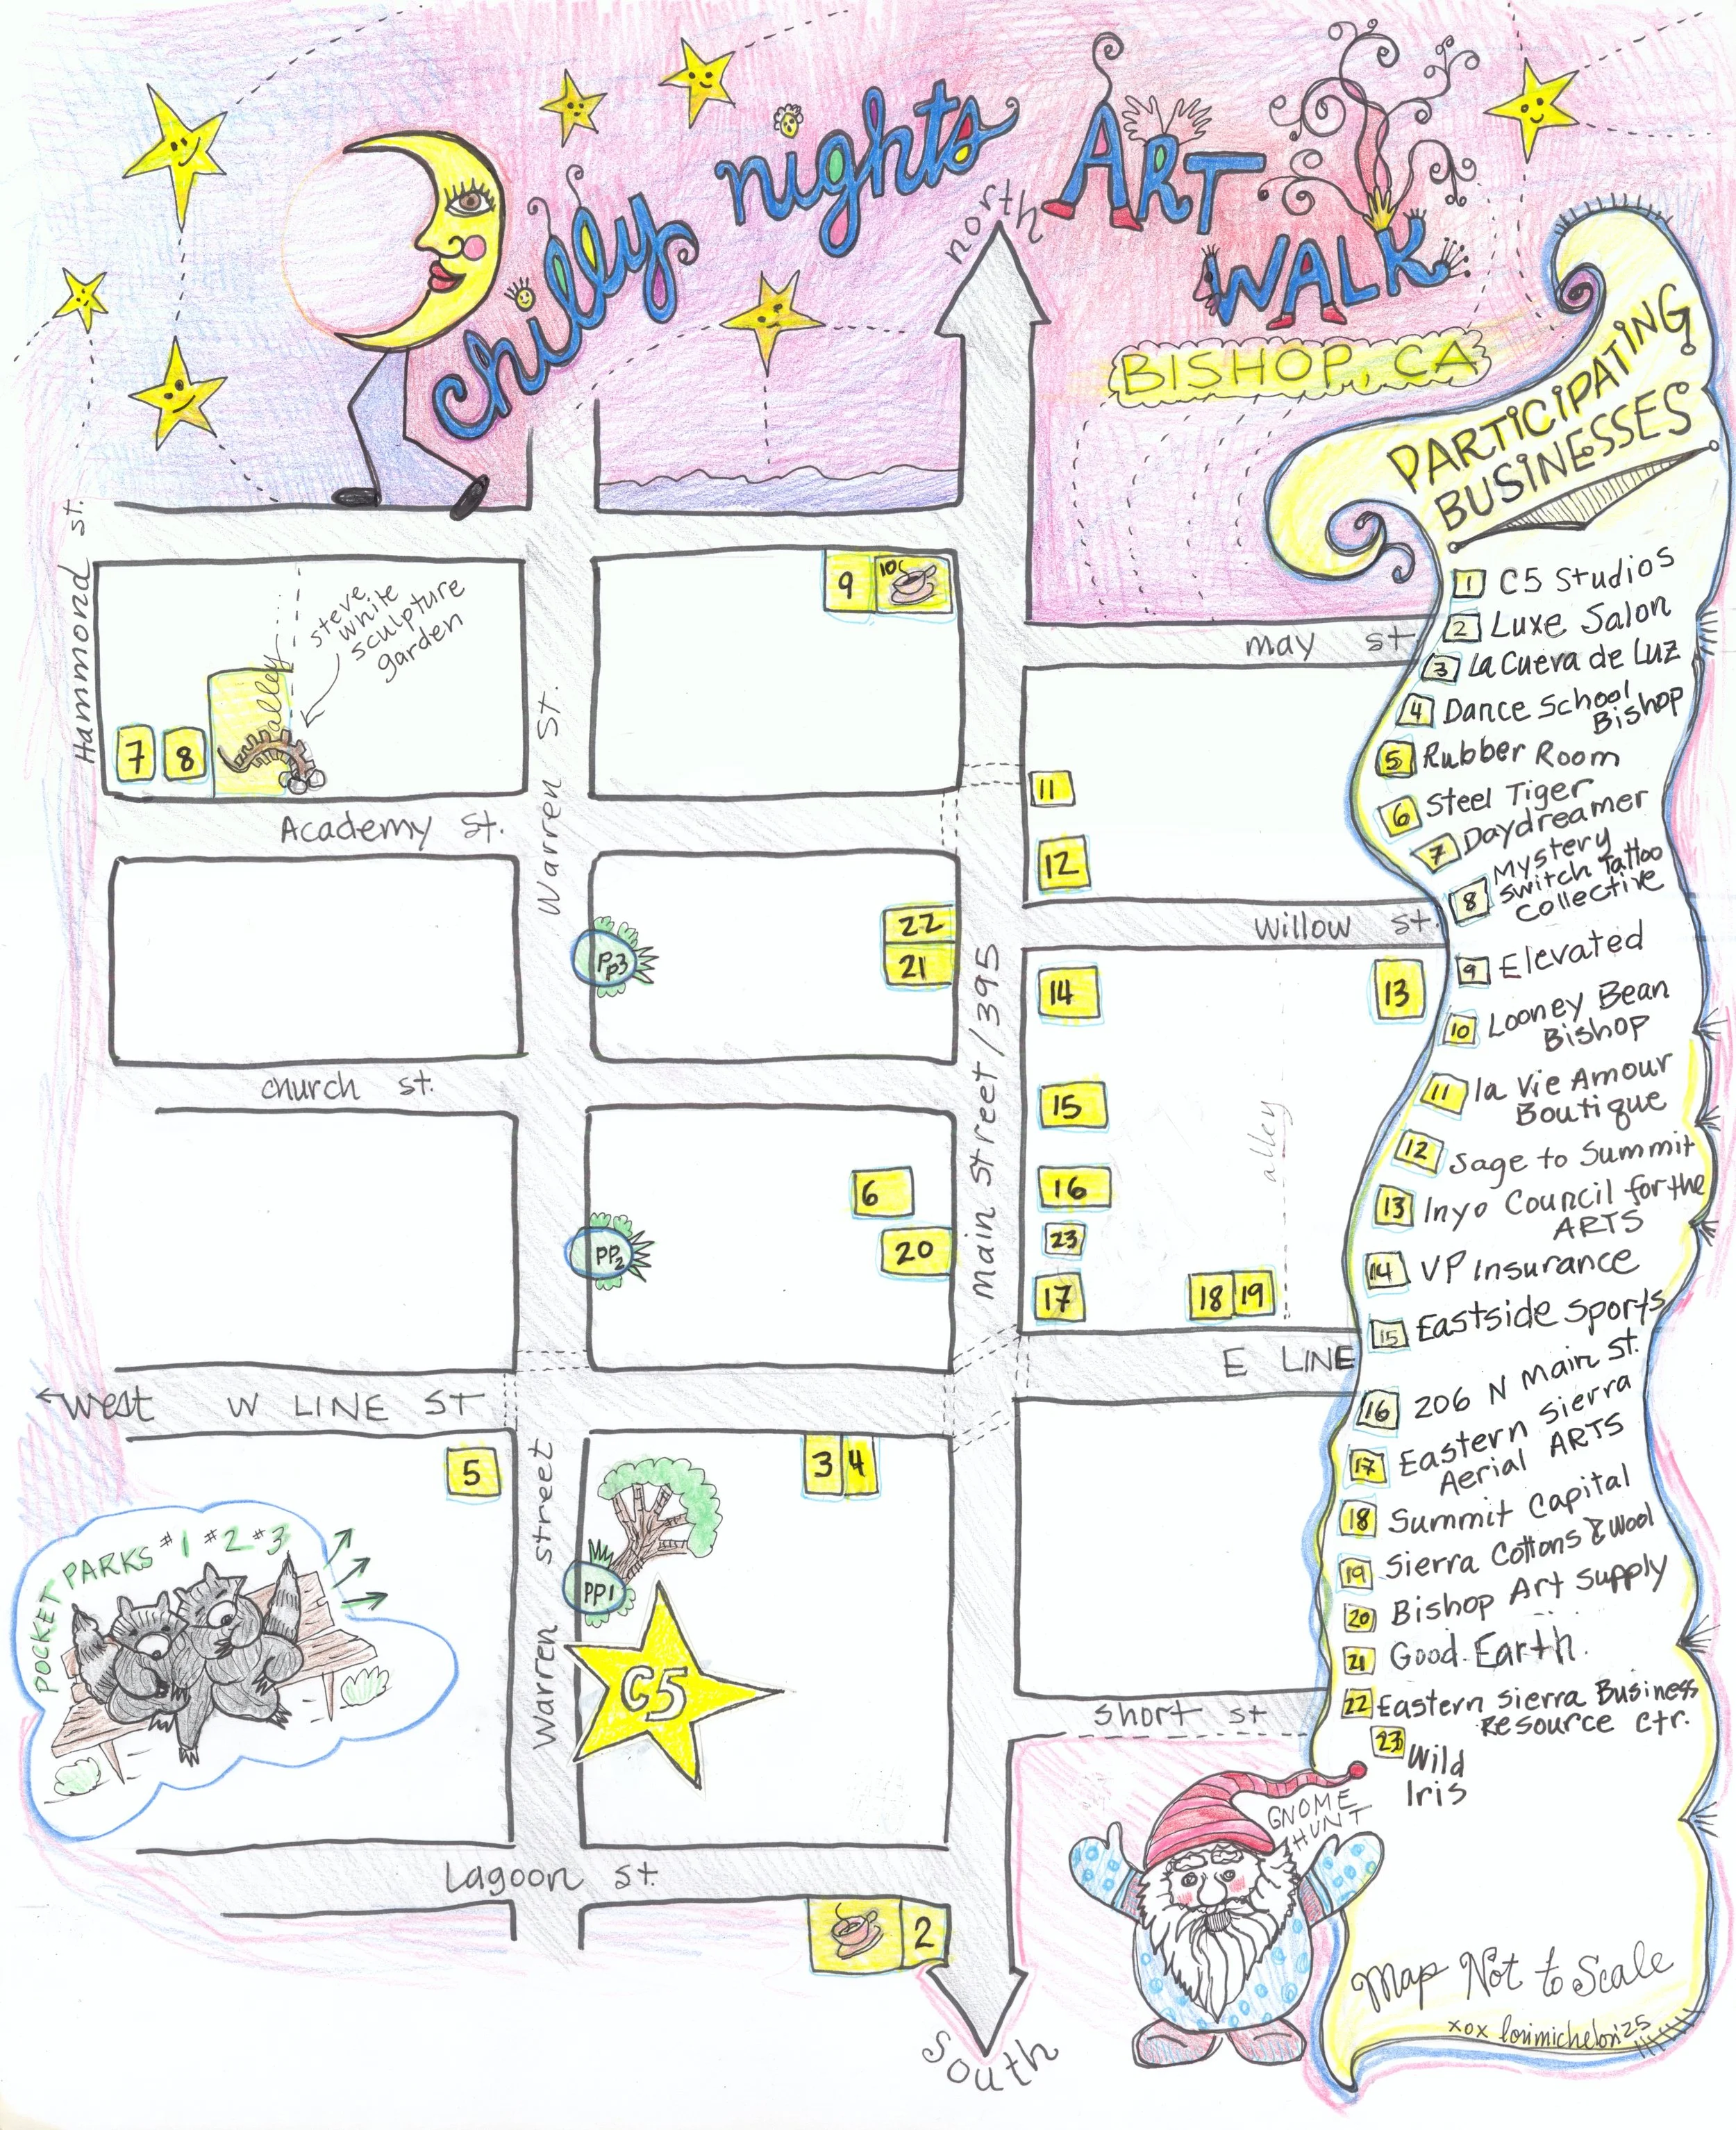 chilly nights ART
WALK
BISHOP, CA
north
PARTICIPATING
BUSINESSES
1 C5 Studios
2 Luxe Salon
3 La Cueva de Luz
4 Dance School
Bishop
5 Rubber Room
6 Steel Tiger
7 Daydreamer
8 Mystery
Switch Tattoo
Collective
9 Elevated
10 Looney Bean
Bishop
11 la Vie Amour
Boutique
12 Sage to Summit
13 Inyo Council for the
ARTS
14 VP Insurance
15 Eastside Sports
16 206 N Main St.
17 Eastern Sierra
Aerial ARTS
18 Summit Capital
19 Sierra Cottons & Wool
20 Bishop Art Supply
21 Good Earth
22 Eastern Sierra Business
Resource Ctr.
23 Wild
Iris
Map Not to Scale
xox lorimichelon '25
Hammond st.
steve
white
sculpture
garden
alley
7 8
9 10
may st
Academy st.
Warren St.
11
12
Willow st.
PP3
22
21
Main Street / 395
14
13
15
16
23
17
18 19
alley
church st.
6
PP2
20
west W LINE ST
E LINE
5
3 4
Warren street
PP1
C5
POCKET PARKS #1 #2 #3
short st
Lagoon st.
2
GNOME
HUNT
south